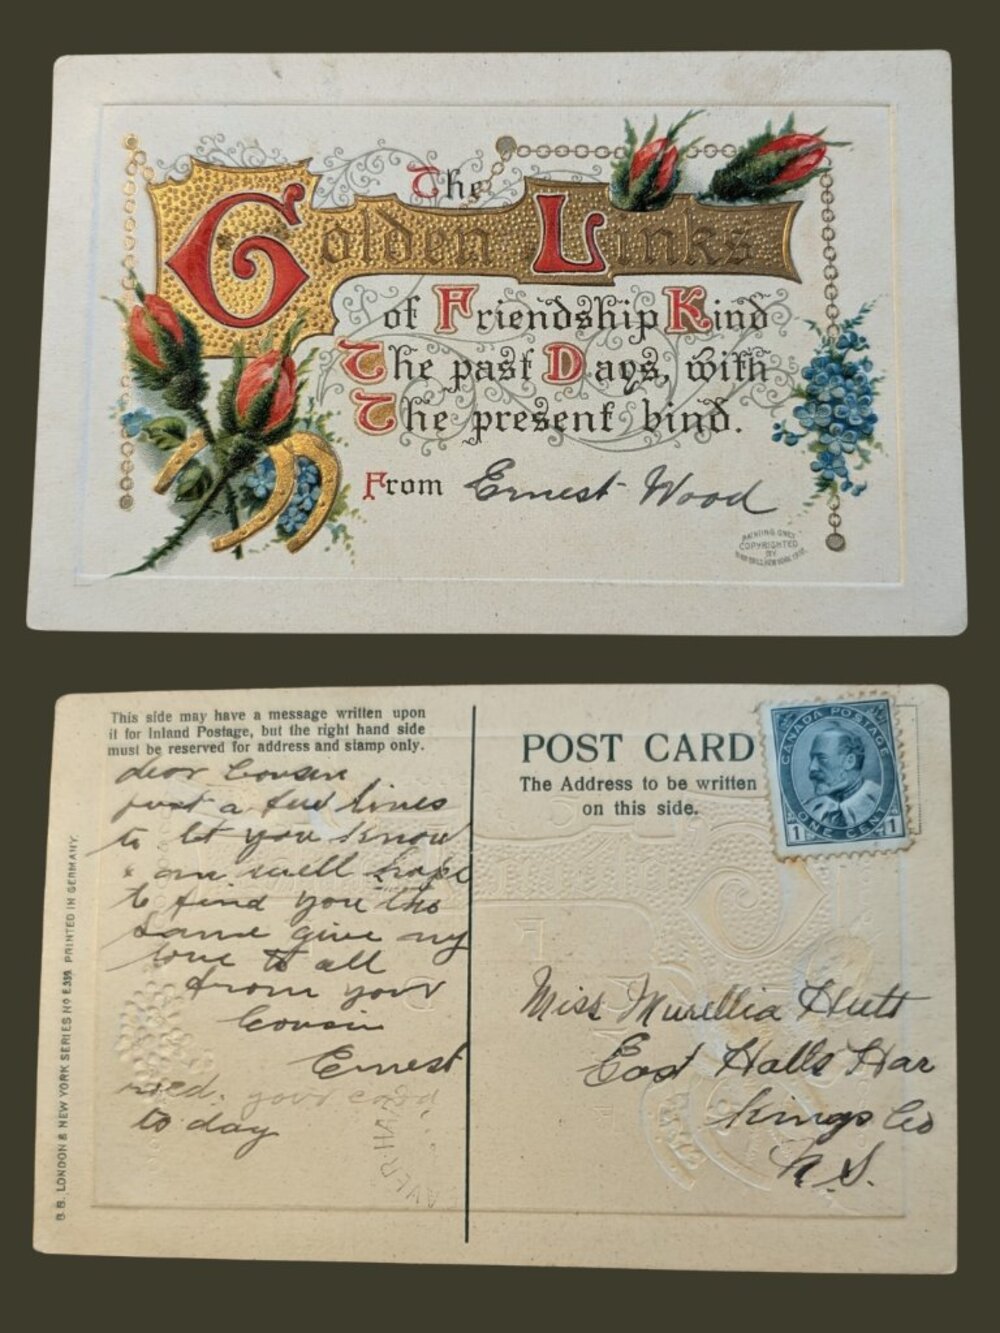 The
Golden Links
of Friendship Kind
The past Days, with
The present bind.
From Ernest Wood
COPYRIGHTED
BY
This side may have a message written upon
it for Inland Postage, but the right hand side
must be reserved for address and stamp only.
dear Cousin
just a few lines
to let you know
am well hope
to find you the
same give my
love to all
from your
Cousin
Ernest
red. your card
to day
B.B. LONDON & NEW YORK SERIES No E.399. PRINTED IN GERMANY.
POST CARD
The Address to be written
on this side.
CANADA POSTAGE
1 ONE CENT 1
Miss Murellia Hutt
East Halls Har
Kings Co
N.S.